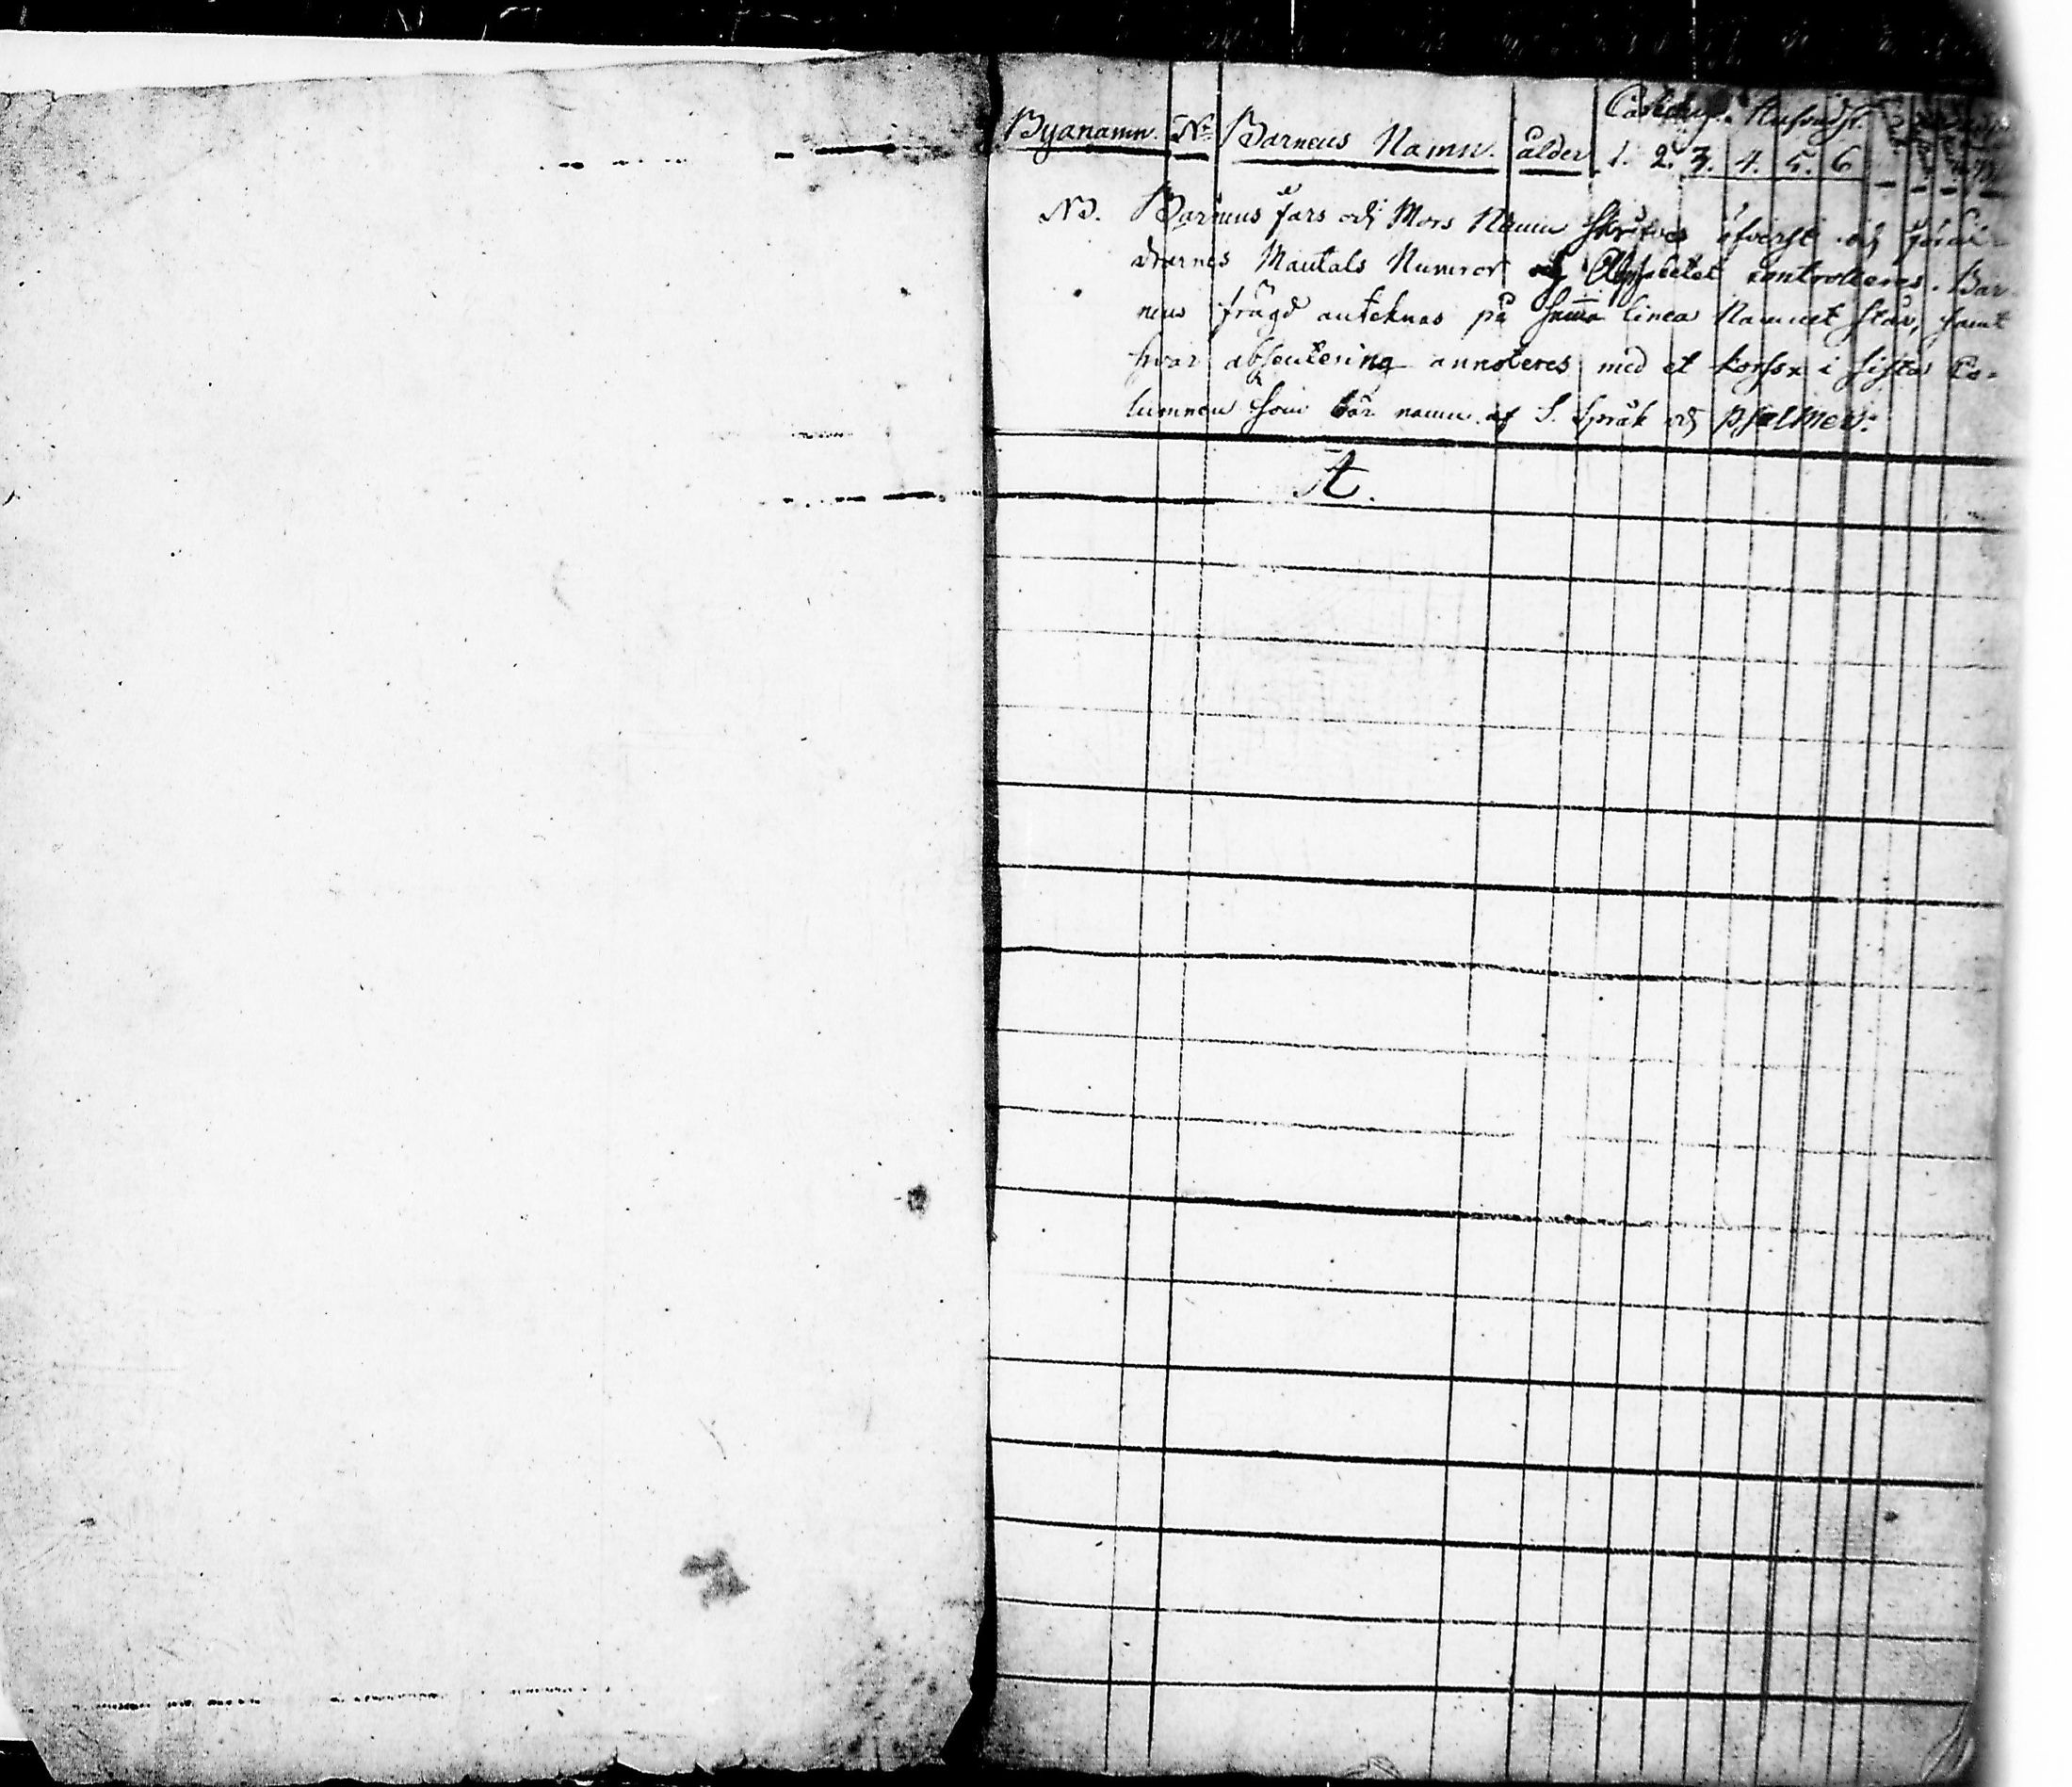 Byanamn. No Barnens Namn. ålder
1. 2. 3. 4. 5. 6
NB. Barnens fars och Mors Namn skrifves öfverst och föräl-
drarnes Mantals Numror och Alphabetet controlleres. Bar-
nens frägd anteknas på samma linea Namnet står, samt
hvar absentering annoteres med et korss x i sista Co-
lumnen som bär namn af S. Språk och psalmer.
A.